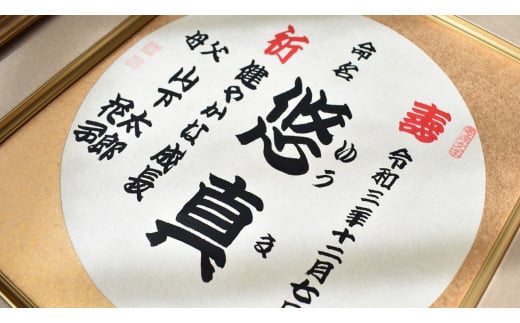 寿
令和三年十二月七日
命名
悠真
ゆうま
祈
健やかな成長
父 山下
太郎
母